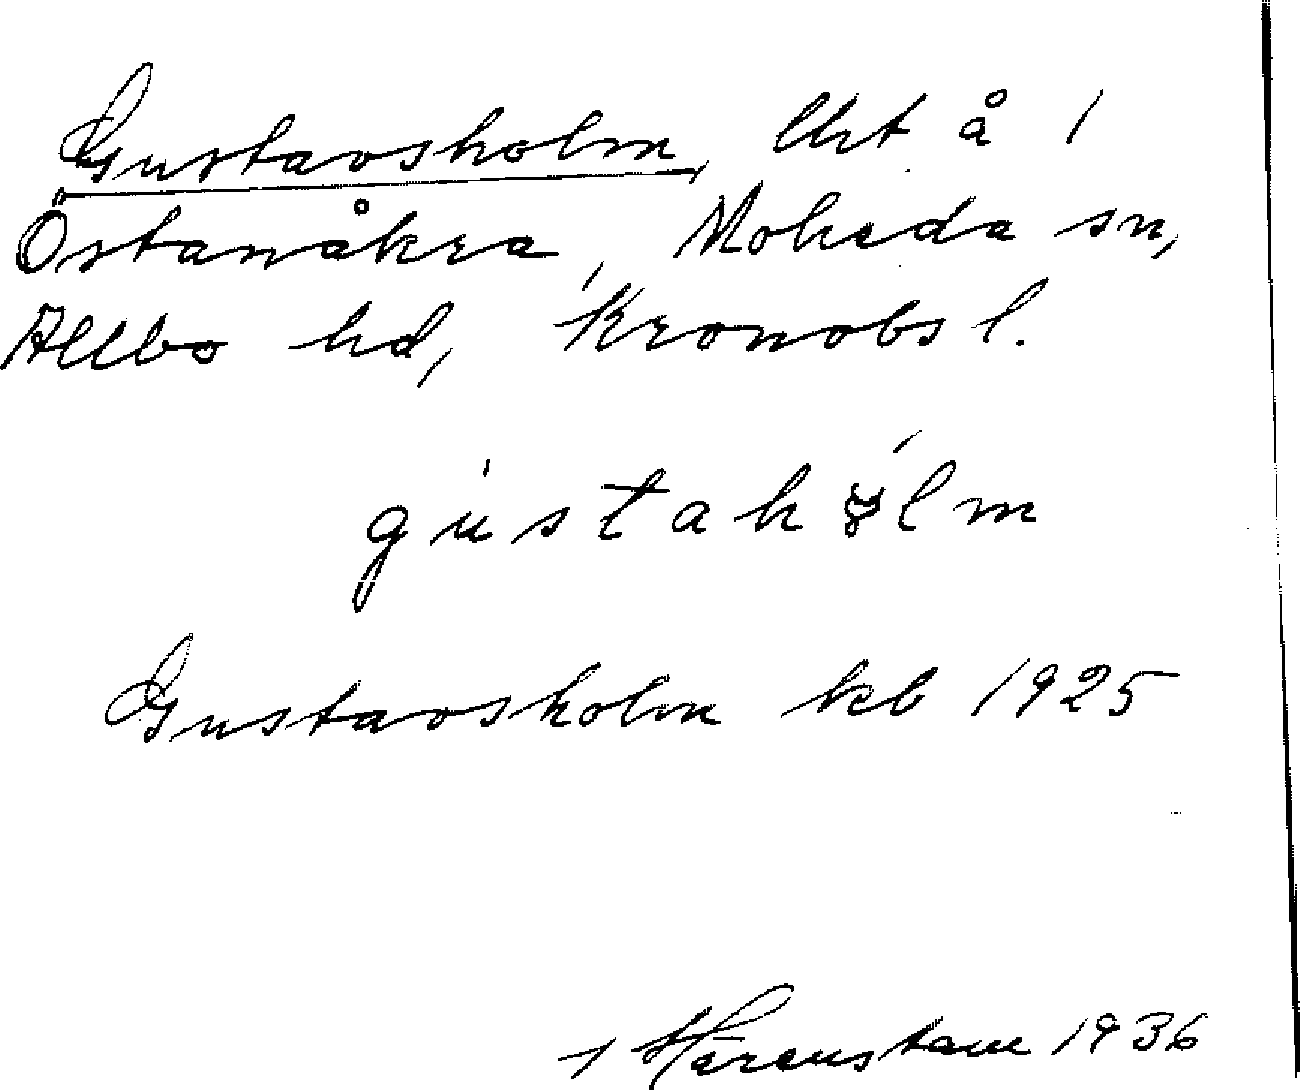 Gustavsholm, lht å 1
Östanåkra, Moheda sn,
Allbo hd, Kronobs l.
gústahólm
Gustavsholm kb 1925
Härenstam 1936